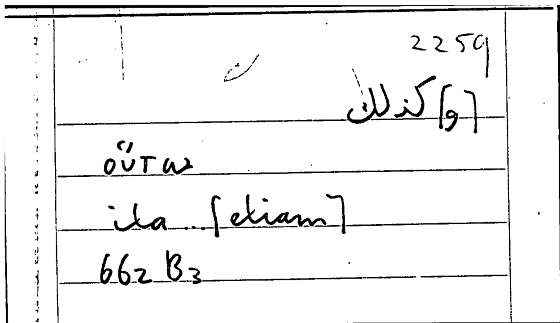 2259
[و] كذلك
οὕτω
ita ... [etiam]
662 B3